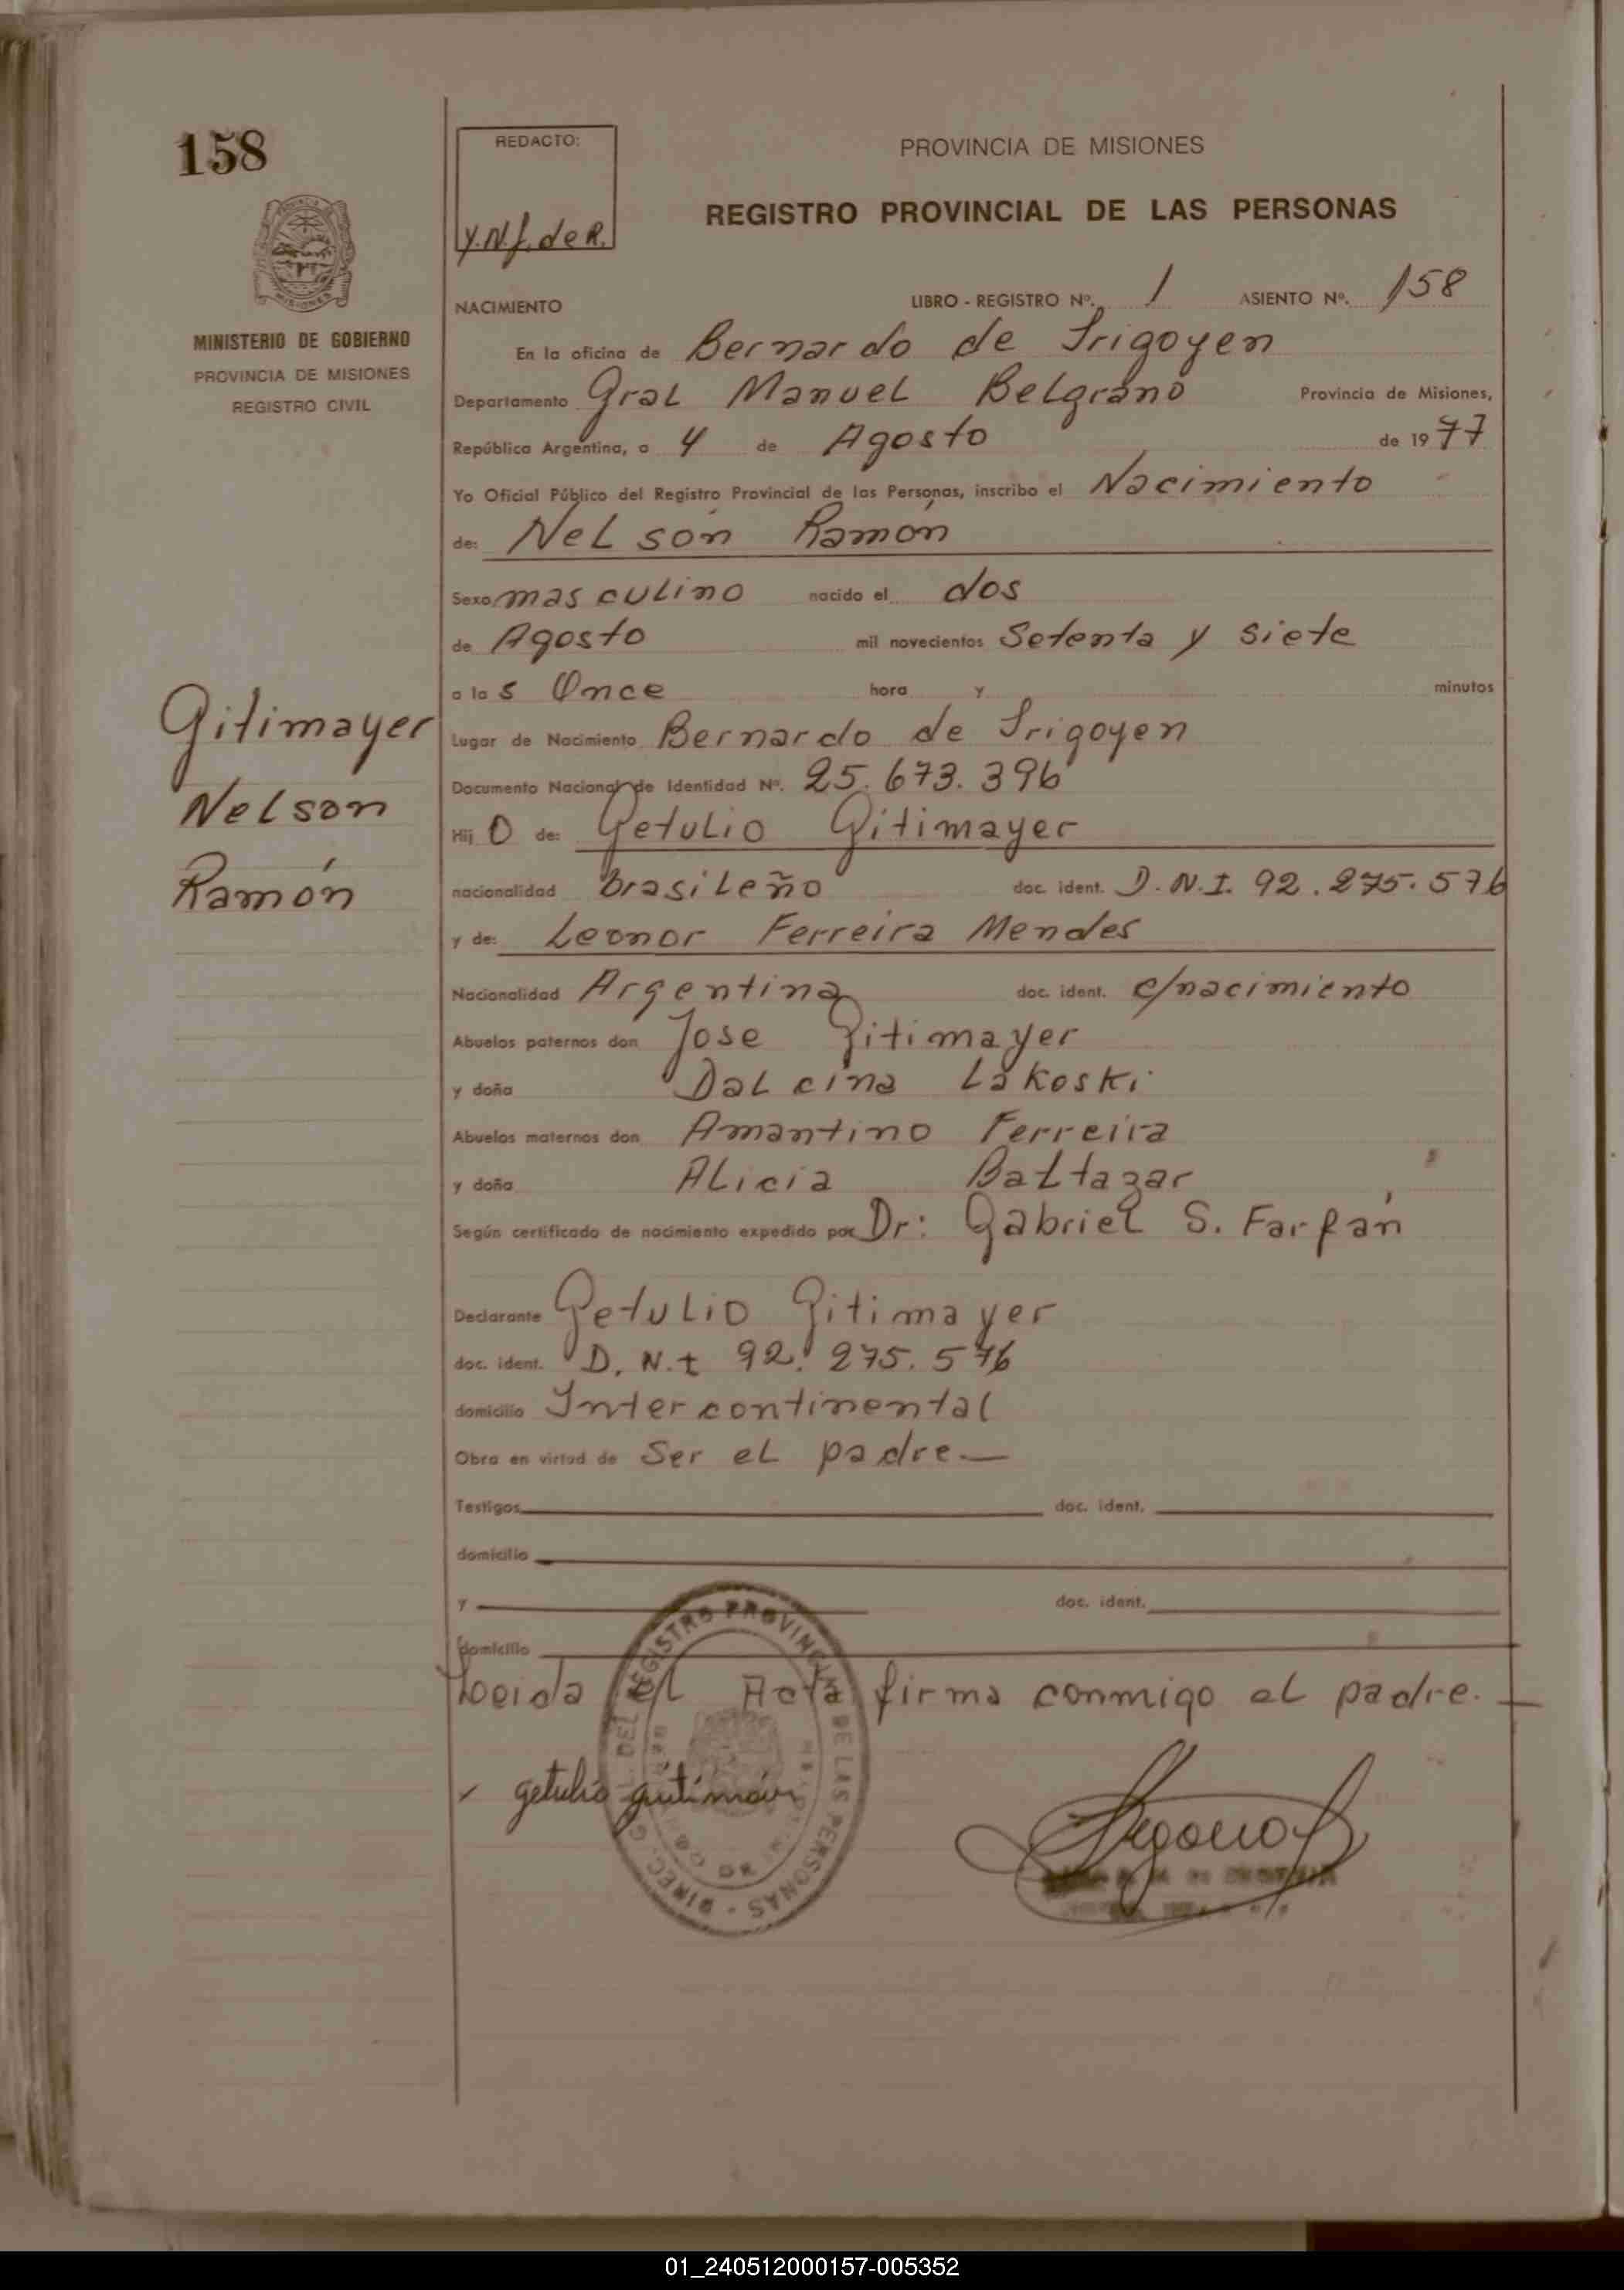 158
REDACTO:
Y.N.f. de R.
PROVINCIA DE MISIONES
REGISTRO PROVINCIAL DE LAS PERSONAS
MISIONES
MINISTERIO DE GOBIERNO
PROVINCIA DE MISIONES
REGISTRO CIVIL
NACIMIENTO LIBRO - REGISTRO Nº. 1 ASIENTO Nº. 158
En la oficina de Bernardo de Irigoyen
Departamento Gral Manuel Belgrano Provincia de Misiones,
República Argentina, a 4 de Agosto de 1977
Yo Oficial Público del Registro Provincial de las Personas, inscribo el Nacimiento
de: Nelson Ramón
Sexo masculino nacido el dos
de Agosto mil novecientos Setenta y siete
a las Once hora y minutos
Lugar de Nacimiento Bernardo de Irigoyen
Documento Nacional de Identidad Nº. 25.673.396
Gitimayer
Nelson
Ramón
Hijo de: Getulio Gitimayer
nacionalidad brasileño doc. ident. D.N.I. 92.275.576
y de: Leonor Ferreira Mendes
Nacionalidad Argentina doc. ident. c/nacimiento
Abuelos paternos don Jose Gitimayer
y doña Dalcina Lakoski
Abuelos maternos don Amantino Ferreira
y doña Alicia Baltazar
Según certificado de nacimiento expedido por Dr: Gabriel S. Farfán
Declarante Getulio Gitimayer
doc. ident. D.N.I 92.275.576
domicilio Intercontinental
Obra en virtud de Ser el padre.—
Testigos doc. ident.
domicilio
y doc. ident.
domicilio
Leida el Acta firma conmigo el padre. —
getulio
DIREC. GRAL. DEL REGISTRO PROVINCIAL DE LAS PERSONAS
01_240512000157-005352